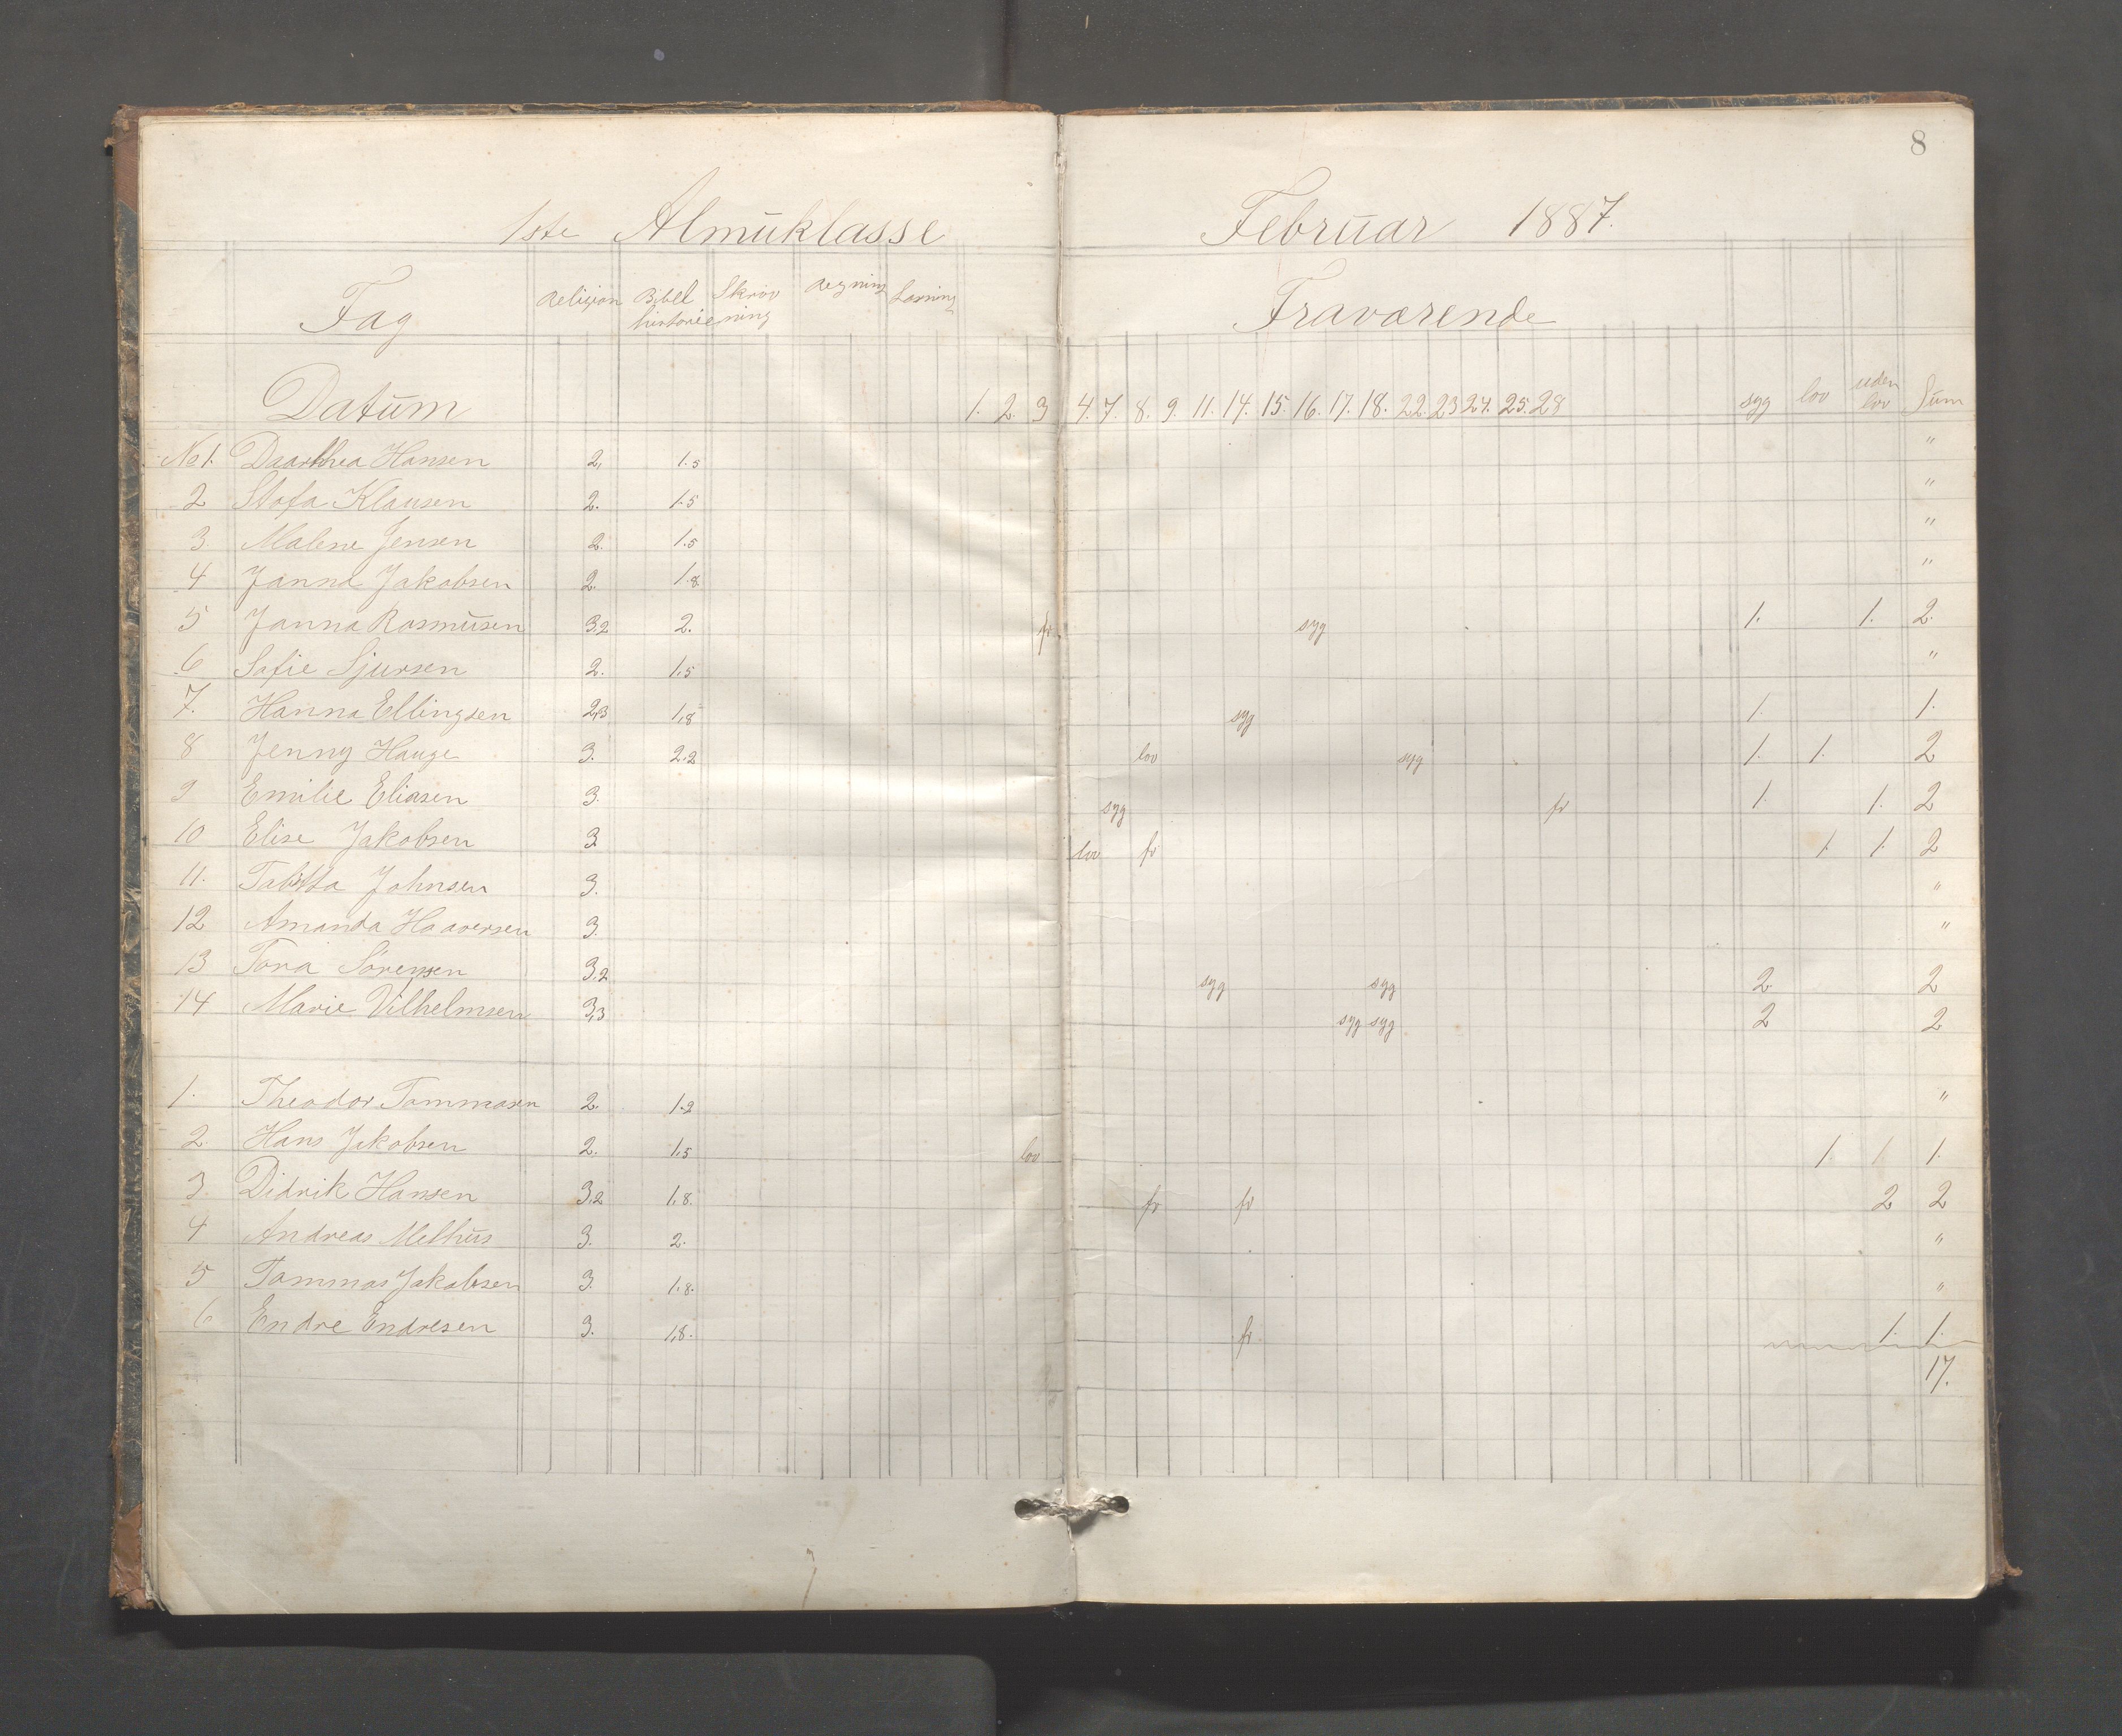 8
1ste Almuklasse Februar 1887.
Fag Religion Bibel historie Skriv ning Regning Læsning Fraværende
Datum 1. 2. 3 4. 7. 8. 9. 11. 14. 15. 16. 17. 18. 22. 23 24. 25. 28 syg lov uden lov Sum
No 1. Daarthea Hansen 2, 1.5 "
2 Klausen 2. 1.5 "
3. Malene Jensen 2. 1.5 "
4 Janna Jakobsen 2. 1.8. "
5 Janna Rasmusen 3.2 2. fr syg 1. 1. 2.
6 Sofie Sjursen 2. 1.5 "
7. Hanna Ellingsen 2,3 1,8 syg 1. 1.
8 Jenny Hauge 3. 2.2 lov syg 1. 1. 2
9 Emilie Eliasen 3. syg fr 1. 1. 2
10 Elise Jakobsen 3 lov fr 1. 1. 2
11. Tabitta Johnsen 3. "
12 Amanda Haaversen 3. "
13 Tora Sørensen 3.2 syg syg 2 2
14 Marie Vilhelmsen 3,3 syg syg 2 2
1. Theodor Tommasen 2. 1.2 "
2 Hans Jakobsen 2. 1,5 lov 1. 1 1.
3. Didrik Hansen 3,2 1,8. fr fr 2 2
4 Andreas Melhus 3. 2. "
5 Tommas Jakobsen 3. 1.8. "
6 Endre Endresen 3. 1,8. fr 1. 1.
17.